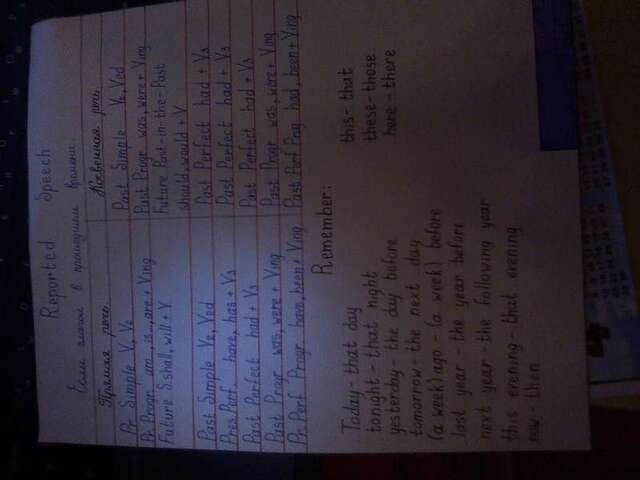 Reported Speech
Если глагол в прошедшем времени.
Прямая речь Косвенная речь
Pr Simple V, Vs Past Simple V2, Ved
Pr Progr am, is, are + Ving Past Progr was, were + Ving
Future S. shall, will + V Future Past-in-the-Past
should, would + V
Past Simple V2, Ved Past Perfect had + V3
Pres Perf have, has + V3 Past Perfect had + V3
Past Perfect had + V3 Past Perfect had + V3
Past Progr was, were + Ving Past Progr was, were + Ving
Pr Perf Progr have, been + Ving Past Perf Prog had, been + Ving
Remember:
Today - that day this - that
tonight - that night these - those
yesterday - the day before here - there
tomorrow - the next day
(a week) ago - (a week) before
last year - the year before
next year - the following year
this evening - that evening
now - then